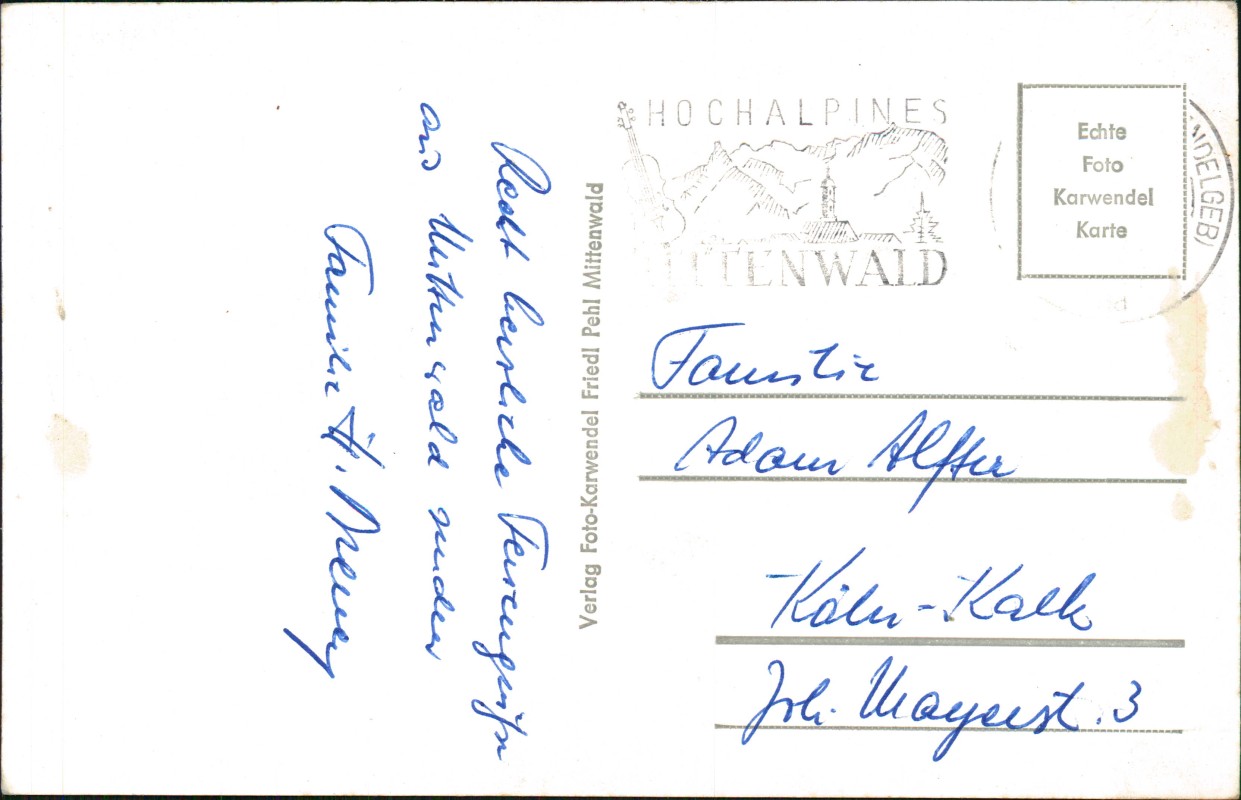 Recht herzliche Feriengrüße
aus Mittenwald senden
Familie H.
Verlag Foto-Karwendel Friedl Pehl Mittenwald
HOCHALPINES
MITTENWALD
Echte
Foto
Karwendel
Karte
NDELGEB)
Familie
Adam Alffter
Köln-Kalk
Joh. Mayerst. 3